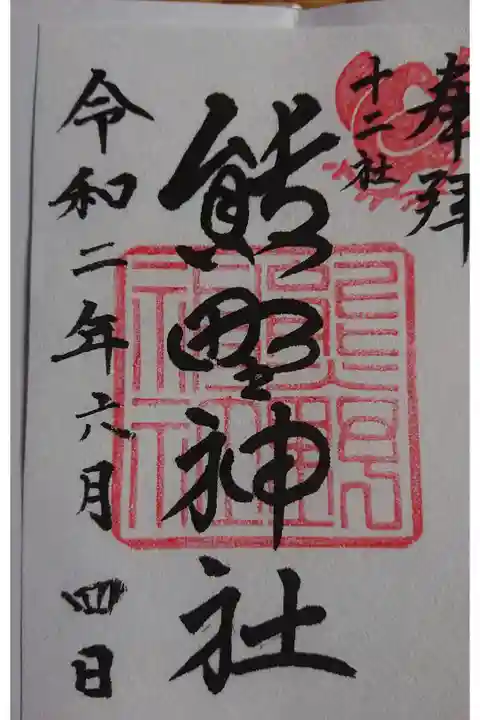 奉拜
十二社
熊野神社
令和二年六月四日